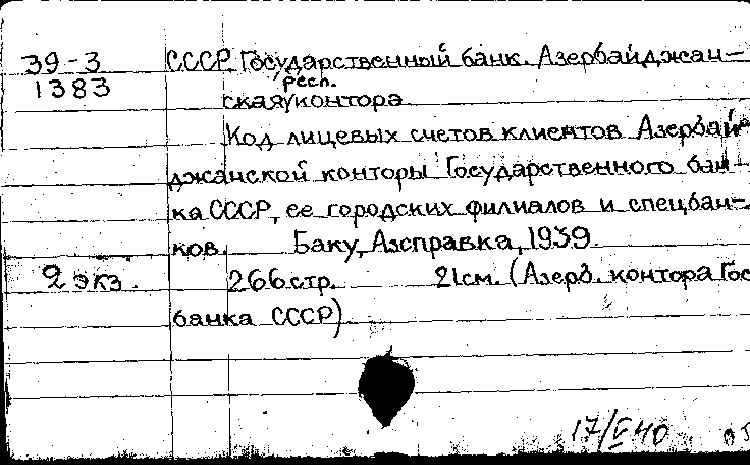 39-3 СССР. Государственный банк. Азербайджан-
1383 респ.
ская контора.
Код лицевых счетов клиентов Азербай-
джанской конторы Государственного бан-
ка СССР, ее городских филиалов и спецбан-
ков. Баку, Азсправка, 1939.
2 экз. 266 стр. 21 см. (Азерб. контора Гос
банка СССР).
17/V 40